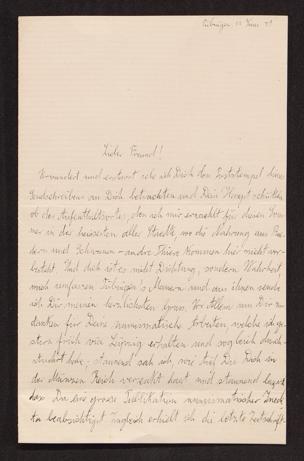 Tübingen, 11 Juni 91
Lieber Freund!
Verwundert und erstaunt sehe ich Dich den Poststempel dieses
Sendschreibens an Dich betrachten und Dein Haupt schütteln
ob des Aufenthaltsortes, den ich mir erwählt für diesen Som-
mer in der heissesten aller Städte, wo die Nahrung aus
dern und Schweinen - andre Thiere kommen hier nicht vor -
besteht. Und doch ist es nicht Dichtung, sondern Wahrheit
mich umfassen Tübingen's Mauern und aus ihnen sende
ich Dir meinen herzlichsten Gruss. Vor Allem aus Dir zu
danken für Deine numismatische Arbeiten welche ich ge-
stern früh von Leipzig erhalten und sogleich durch-
studirt habe. Staunend sah ich, wie tief Du Dich in
der Münzen Reich versenkt hast und staunend
dass Du eine grosse Publikation numismatischer
beabsichtigst. Zugleich erhielt ich die letzte Zeitschrift